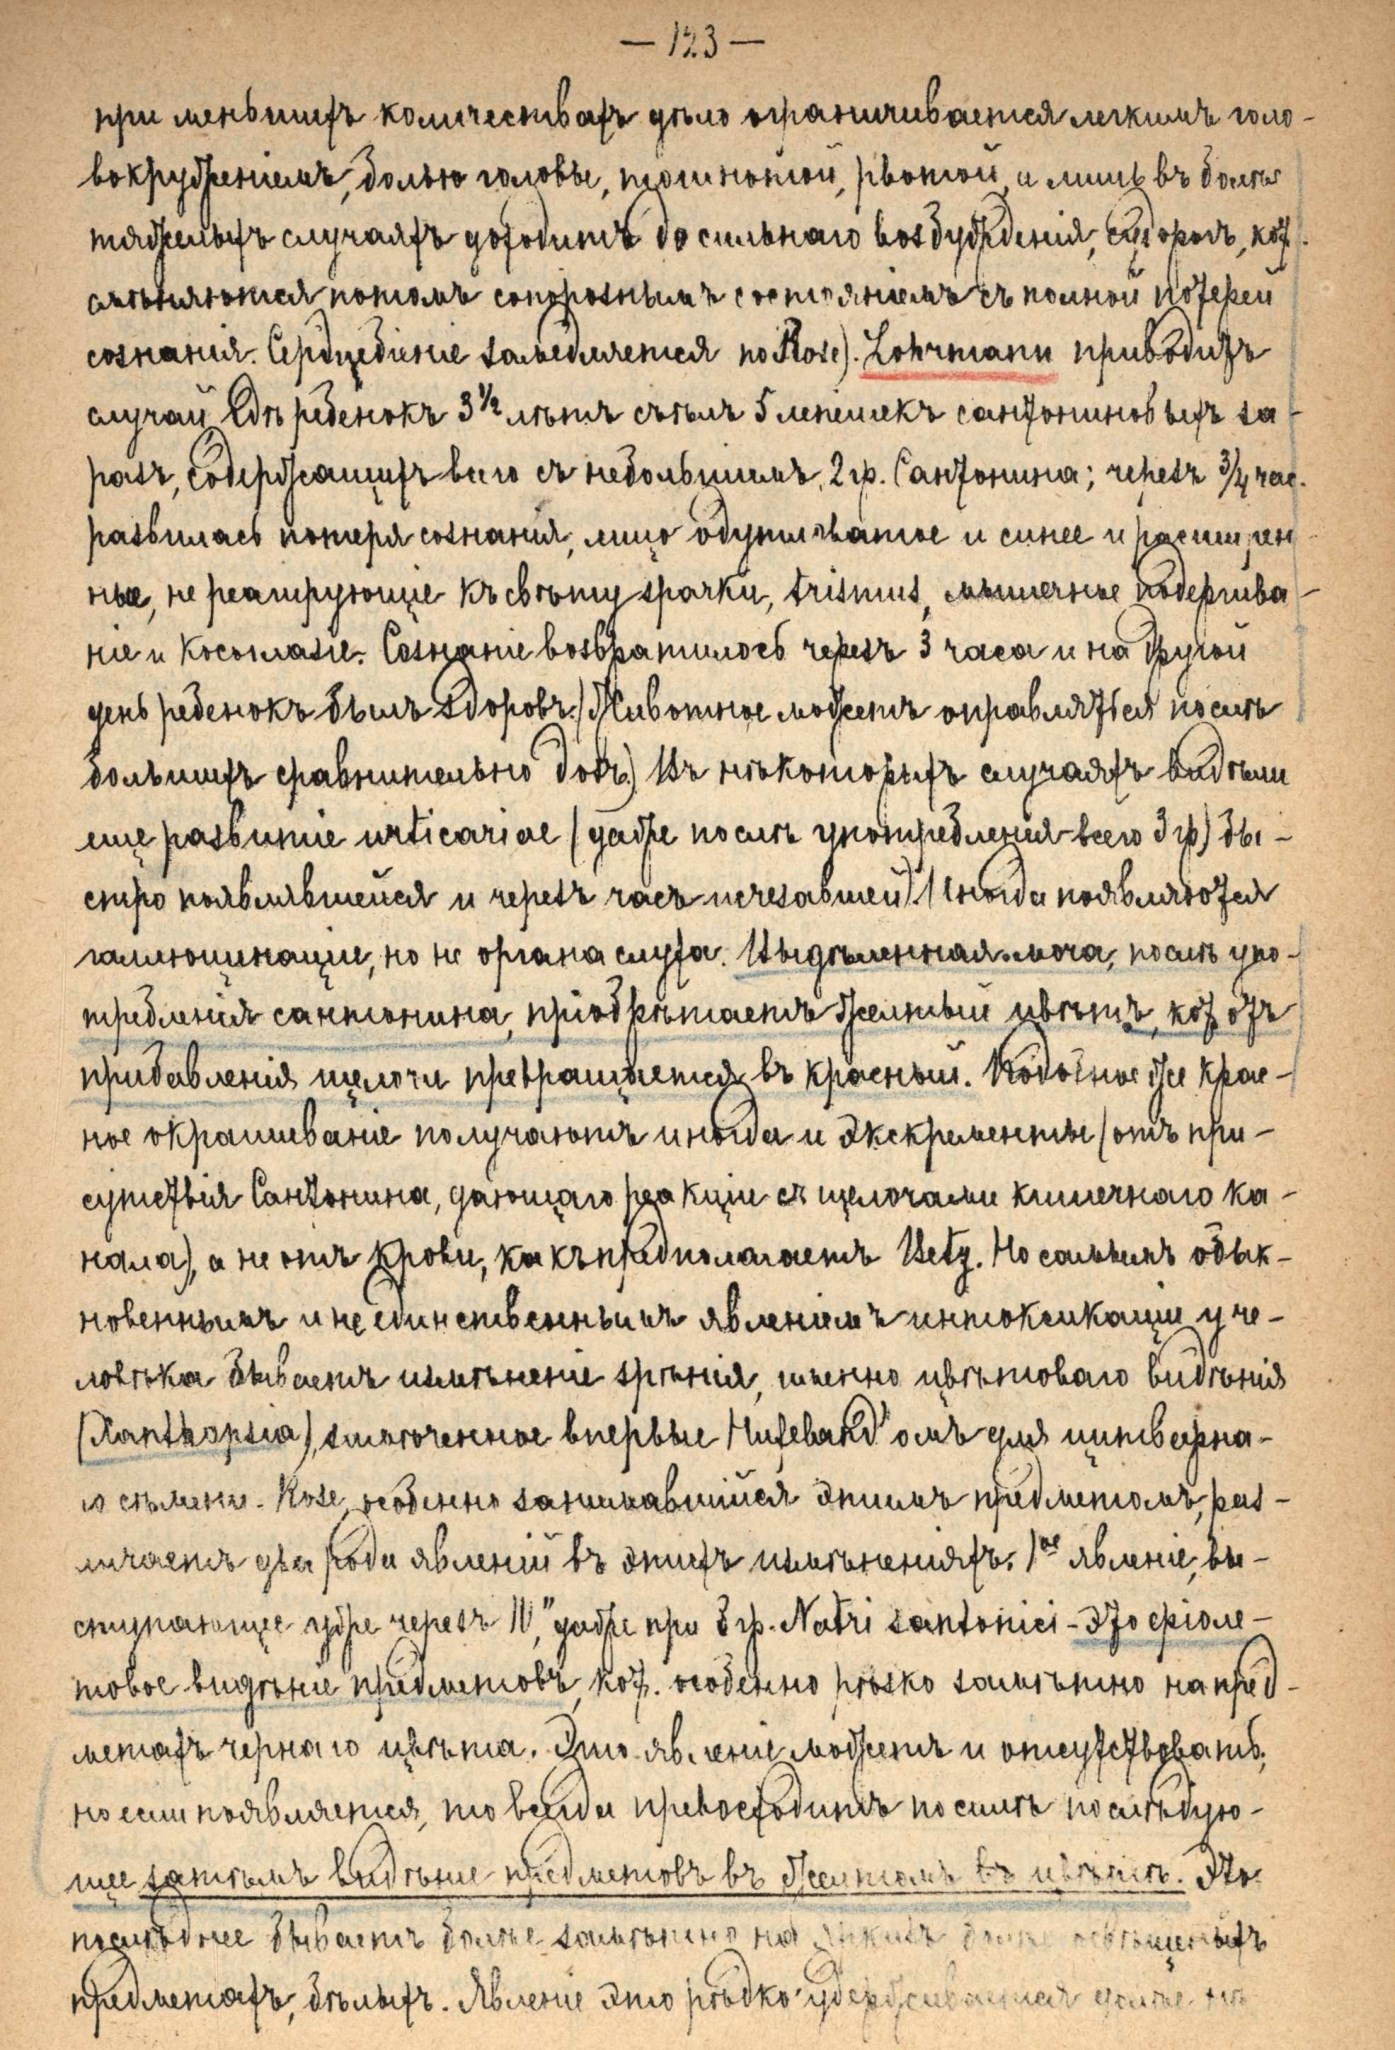 — 123 —
при меньшихъ количествахъ дѣло ограничивается легкимъ голо-
вокруженіемъ, болью головы, тошнотой, рвотой, и лишь въ болѣе
тяжелыхъ случаяхъ доходитъ до сильнаго возбужденія, судорогъ, кот.
смѣняются потомъ сопорознымъ состояніемъ съ полной потерей
сознанія. Сердцебіеніе замедляется по Rose). Lohrmann приводитъ
случай гдѣ ребенокъ 3 1/2 лѣтъ съѣлъ 5 лепешекъ сантониновыхъ за-
разъ, содержащихъ всего съ небольшимъ, 2 гр. Сантонина; черезъ 3/4 час.
развилась потеря сознанія, лицо одутловатое и синее и расширен-
ные, не реагирующіе къ свѣту зрачки, trismus, мышечные подергива-
ніе и косоглазіе. Сознаніе возвратилось черезъ 3 часа и на другой
день ребенокъ былъ здоровъ.) Животное можетъ оправляться послѣ
большихъ сравнительно дозъ.) Въ нѣкоторыхъ случаяхъ видѣли
еще развитіе urticariae (даже послѣ употребленія всего 3 гр) бы-
стро появлявшейся и черезъ часъ исчезавшей). Иногда появляются
галлюцинаціи, но не органа слуха. Выдѣленная моча, послѣ упо-
требленія сантонина, пріобрѣтаетъ желтый цвѣтъ, кот отъ
прибавленія щелочи превращается въ красный. Подобное же крас-
ное окрашиваніе получаютъ иногда и экскременты (отъ при-
сутствія Сантонина, дающаго реакціи съ щелочами кишечнаго ка-
нала), а не отъ крови, какъ предполагаетъ Betz. Но самымъ обык-
новеннымъ и не единственнымъ явленіемъ интоксикаціи у че-
ловѣка бываетъ измѣненіе зрѣнія, именно цвѣтоваго видѣнія
(Xanthopsia), замѣченное впервые Hufeland'омъ для цитварна-
го сѣмени. Rose, особенно занимавшійся этимъ предметомъ, раз-
личаетъ два рода явленій въ этихъ измѣненіяхъ. 1ое явленіе, вы-
ступающее уже черезъ 10," даже при 3 гр. Natri santonici - это фіоле-
товое видѣніе предметовъ, кот. особенно рѣзко замѣтно на пред-
метахъ чернаго цвѣта. Это явленіе можетъ и отсутствовать,
но если появляется, то всегда превосходитъ по силѣ послѣдую-
щее затѣмъ видѣніе предметовъ въ желтомъ цвѣтѣ. Это
послѣднее бываетъ болѣе замѣтно на ярких болѣе освѣщенныхъ
предметахъ, бѣлыхъ. Явленіе это рѣдко удерживается долѣе